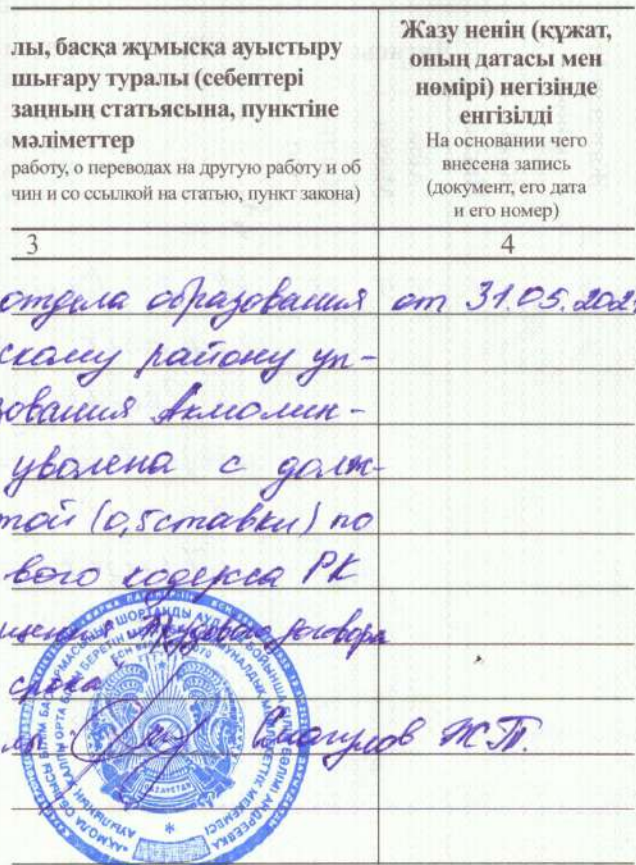 лы, басқа жұмысқа ауыстыру
шығару туралы (себептері
заңның статьясына, пунктіне
мәліметтер
работу, о переводах на другую работу и об
чин и со ссылкой на статью, пункт закона)
Жазу ненің (құжат,
оның датасы мен
нөмірі) негізінде
енгізілді
На основании чего
внесена запись
(документ, его дата
и его номер)
3
4
отдела образования от 31.05.202
скому району уп-
зования Акмолин-
уволена с долж-
той (0,5 ставки) по
вого кодекса РК
Трудового договора
срока
Смагулов Ж.Т.